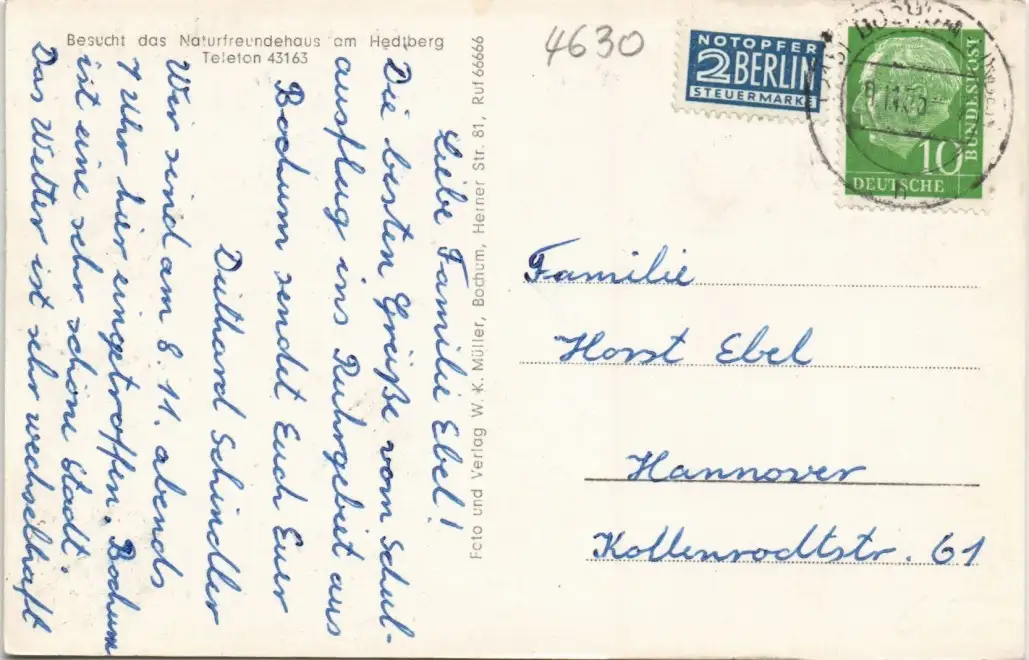 Besucht das Naturfreundehaus am Hedtberg
Telefon 43163
4630
NOTOPFER
2 BERLIN
STEUERMARKE
BOCHUM
10
DEUTSCHE
BUNDESPOST
b
Liebe Familie Ebel!
Die besten Grüße vom Schul-
ausflug ins Ruhrgebiet aus
Bochum sendet Euch Euer
Duthard Schindler
Wir sind am 8. 11. abends
7 Uhr hier eingetroffen. Bochum
ist eine sehr schöne Stadt.
Das Wetter ist sehr wechselhaft
Foto und Verlag W. K. Müller, Bochum, Herner Str. 81, Ruf 66666
Familie
Horst Ebel
Hannover
Kollenrodtstr. 61